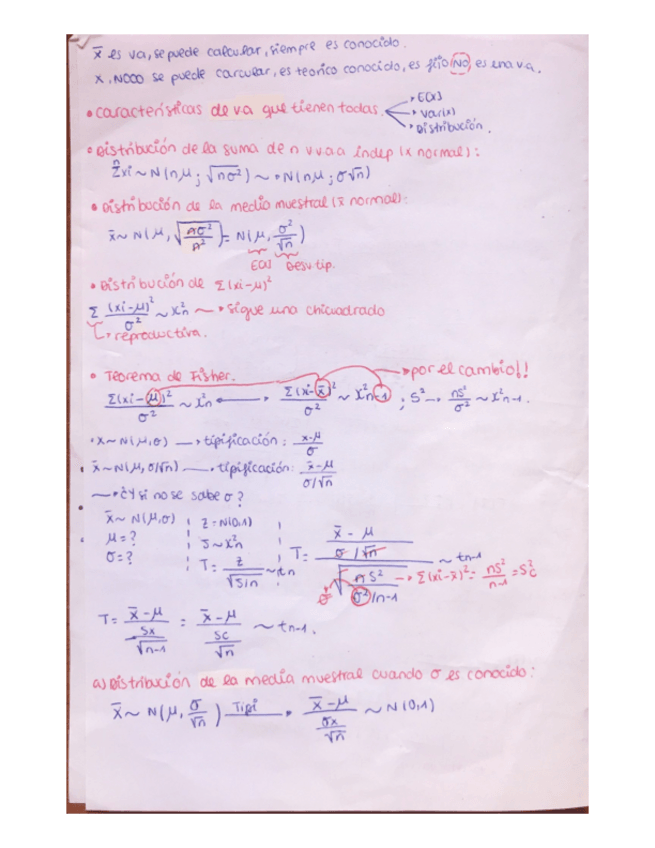 x̄ es va, se puede calcular, siempre es conocido.
x, NOOO se puede carcular, es teorico conocido, es fijo NO es una va.
• características de va que tienen todas. → E(x)
→ var(x)
→ Distribución.
• Distribución de la suma de n vvaa indep (x normal):
n
Σxi ~ N(nμ; √nσ²) ~ • N(nμ; σ√n)
• Distribución de la media muestral (x̄ normal):
x̄ ~ N(μ, √(nσ²/n²)) = N(μ, σ²/√n)
E(x) Desv tip.
• Distribución de Σ(xi-μ)²
Σ (xi-μ)²/σ² ~ χ²n ~→ sigue una chicuadrado
↳ reproductiva.
• Teorema de Fisher. → por el cambio!!
Σ(xi-μ)²/σ² ~ χ²n ←→ Σ(xi-x̄)²/σ² ~ χ²n-1 ; S² → nS²/σ² ~ χ²n-1.
• x ~ N(μ,σ) → tipificación: x-μ/σ
• x̄ ~ N(μ, σ/√n) → tipificación: x̄-μ/σ/√n
~→ ¿Y si no se sabe σ?
x̄ ~ N(μ,σ) Z = N(0,1)
μ=? S ~ χ²n
σ=? T = Z/√S/n ~ tn
T = (x̄ - μ / σ/√n) / √(nS²/σ²/n-1) ~ tn-1
→ Σ(xi-x̄)² = nS²/n-1 = S²c
T = x̄-μ / Sx/√n-1 = x̄-μ / Sc/√n ~ tn-1.
a) Distribución de la media muestral cuando σ es conocido:
x̄ ~ N(μ, σ/√n) Tipi → x̄-μ / σx/√n ~ N(0,1)